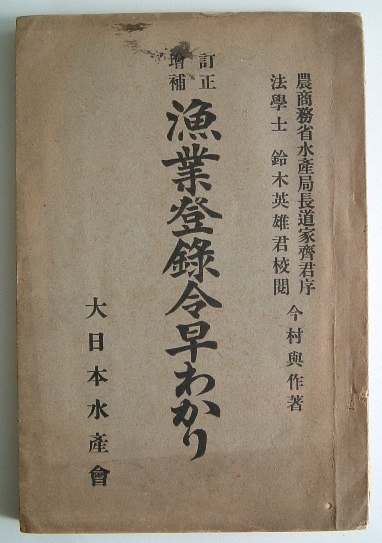 農商務省水産局長道家齊君序
法學士 鈴木英雄君校閲
今村與作著
訂正
增補
漁業登錄令早わかり
大日本水產會